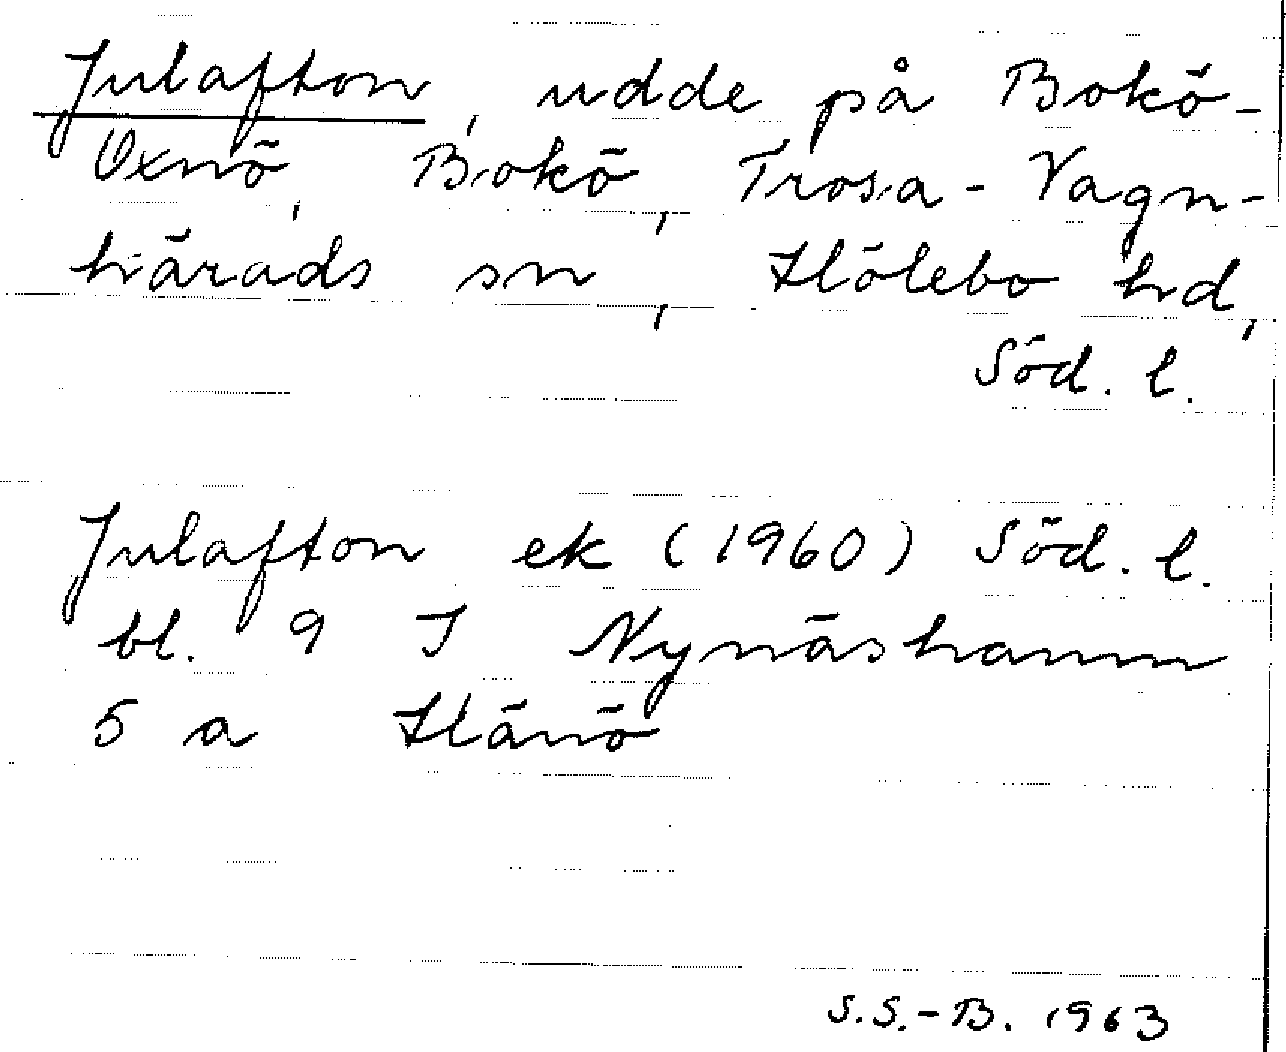 Julafton, udde på Bokö-
Oxnö, Bokö, Trosa-Vagn-
härads sn, Hölebo hd,
Söd. l.
Julafton ek (1960) Söd. l.
bl. 9 I Nynäshamn
5 a Hänö
S.S.-B. 1963